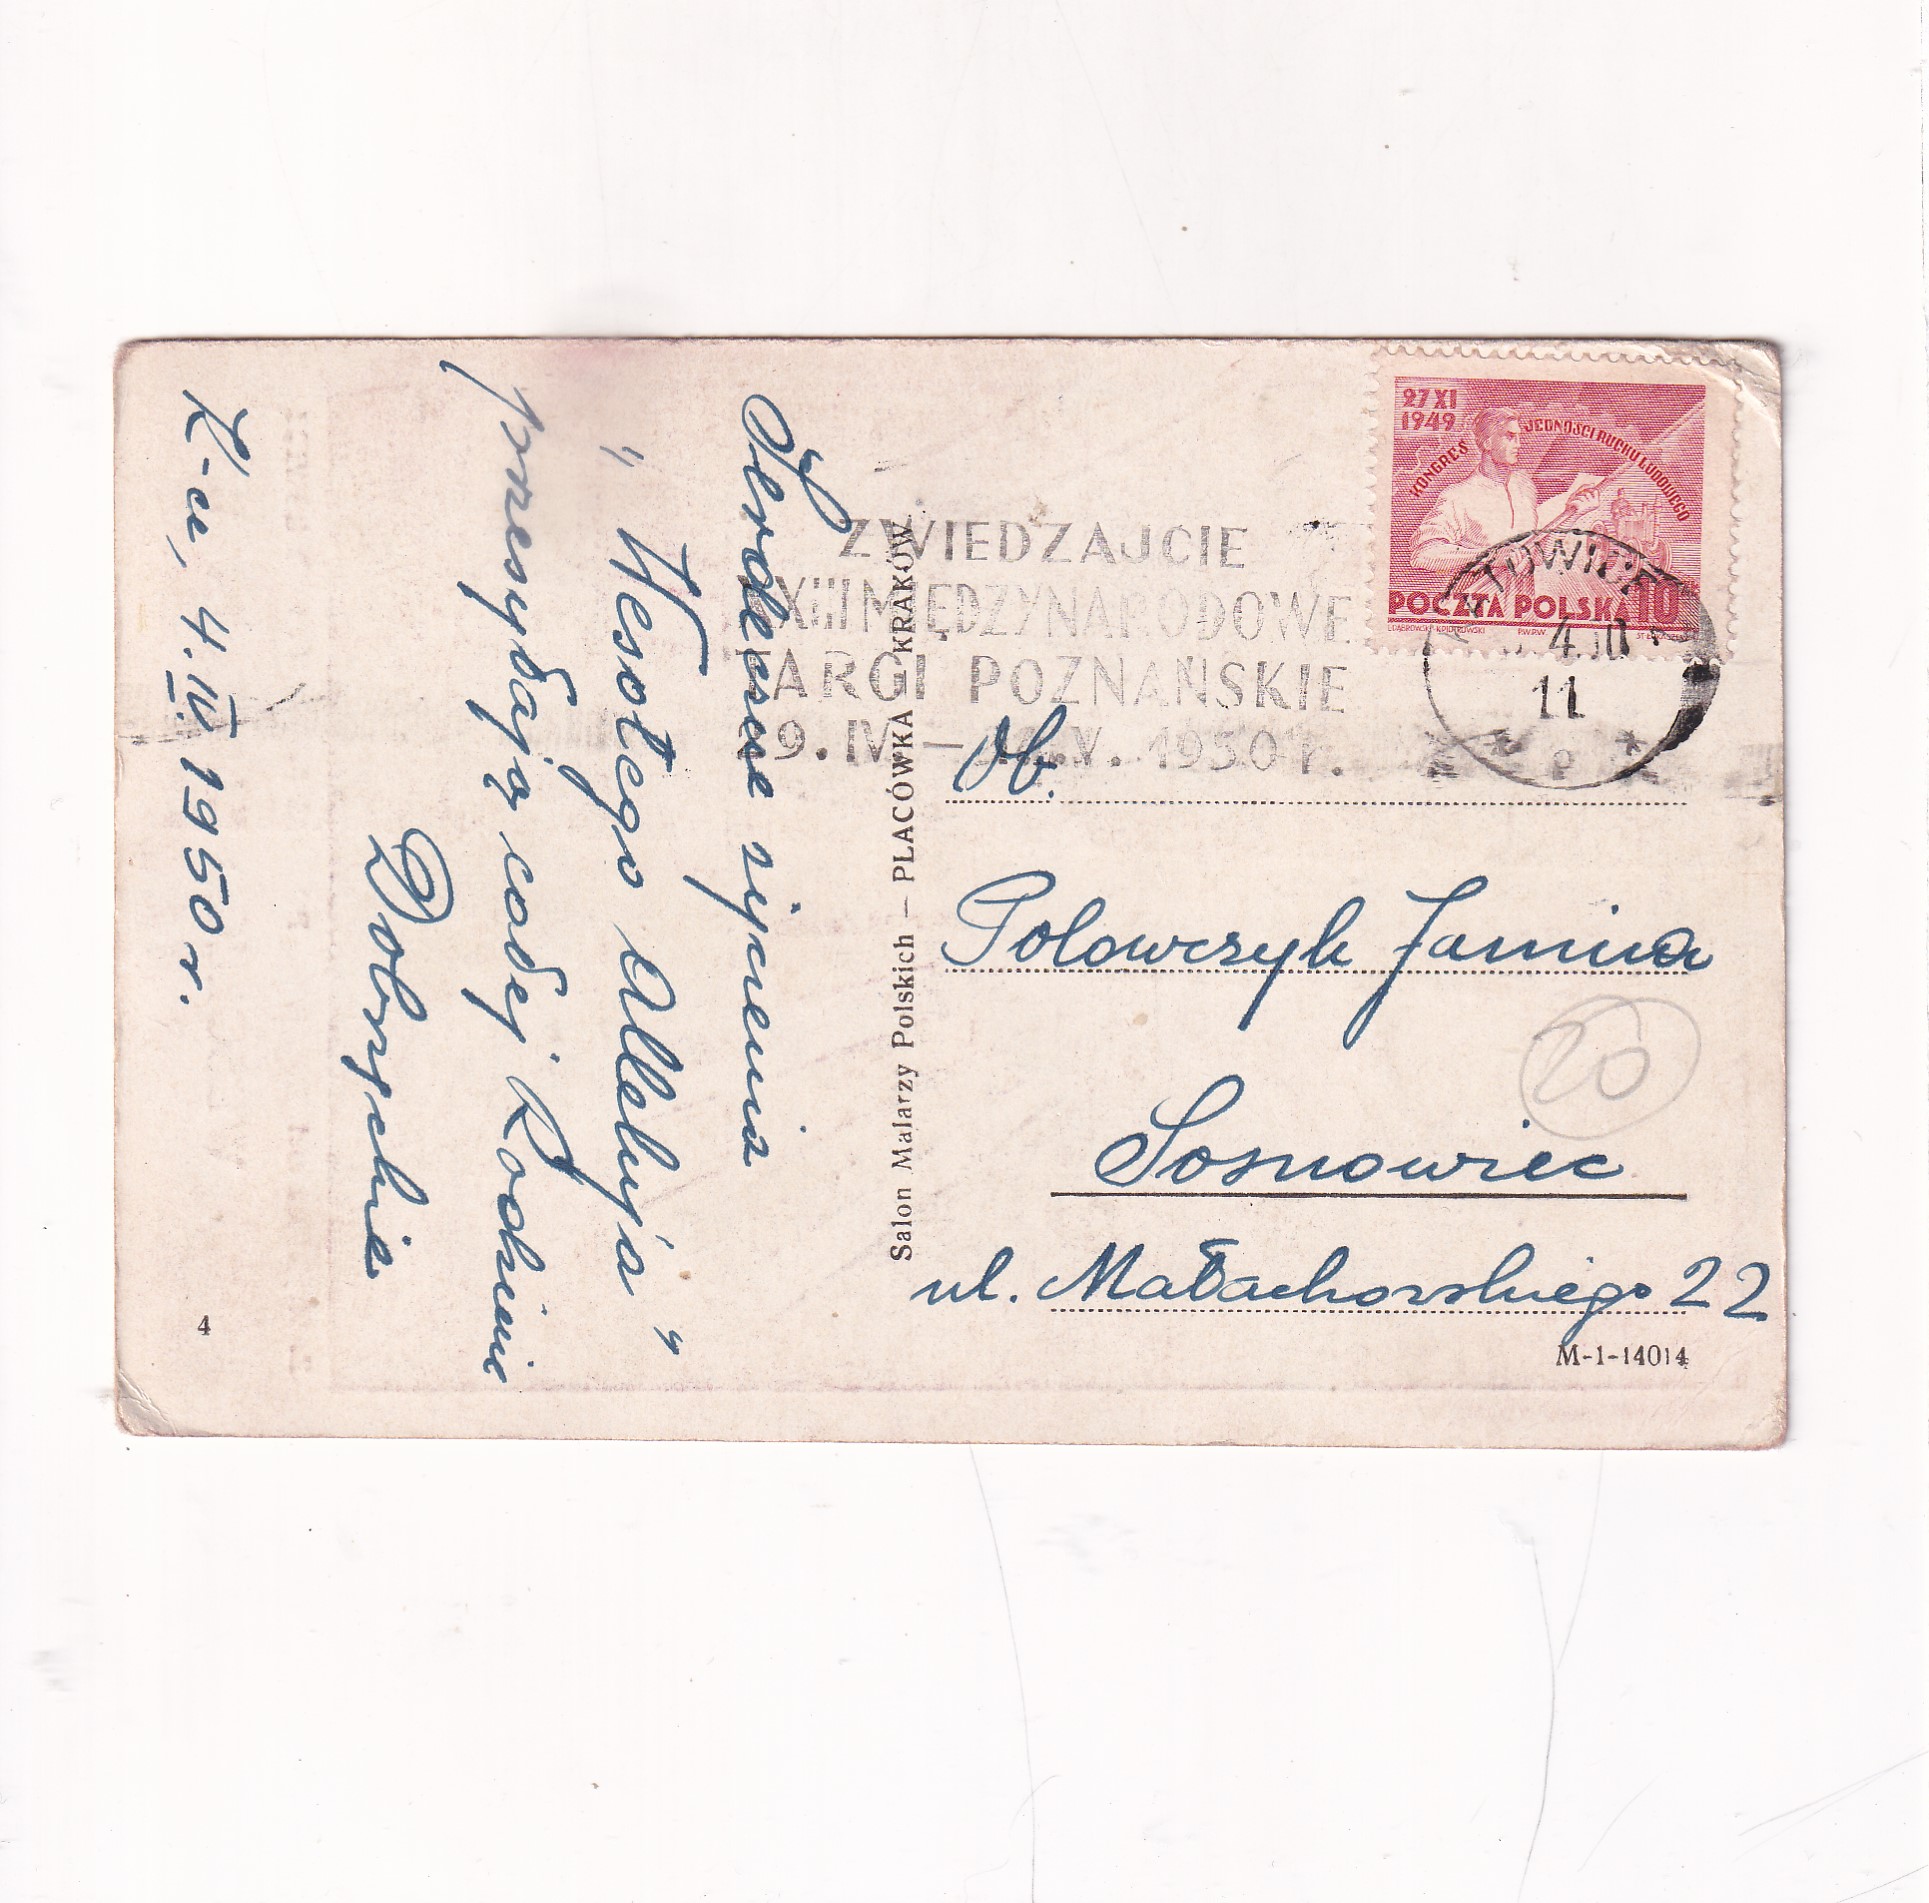 Serdeczne życzenia
„Wesołego Alleluja”
przesyłają całej Rodzinie
K-ce, 4.IV.1950 r.
4
Salon Malarzy Polskich — PLACÓWKA KRAKÓW
27 XI
1949
KONGRES JEDNOŚCI RUCHU LUDOWEGO
POCZTA POLSKA 10
P.W.P.W.
ZWIEDZAJCIE
XXIII MIĘDZYNARODOWE
TARGI POZNAŃSKIE
1950 r.
11
Ob.
Polowczyk Janina
20
Sosnowiec
ul. Małachowskiego 22
M-1-14014